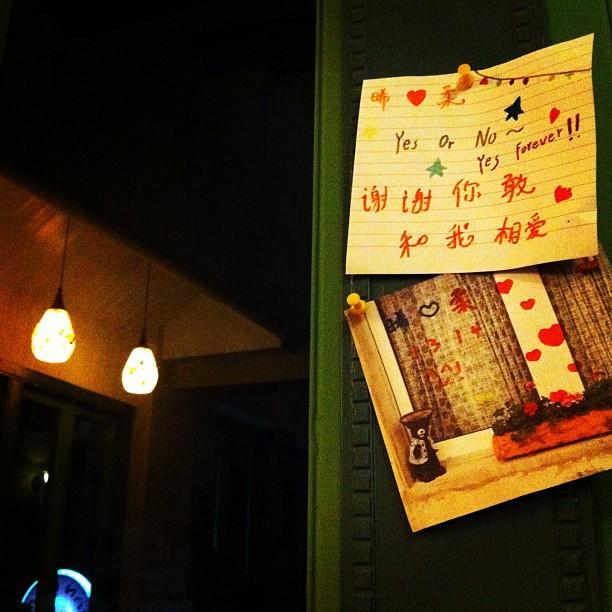 晞 ♥ 柔
Yes or No ~
Yes forever!!
谢谢你敢
和我相爱
晞 ♡ 柔
1314